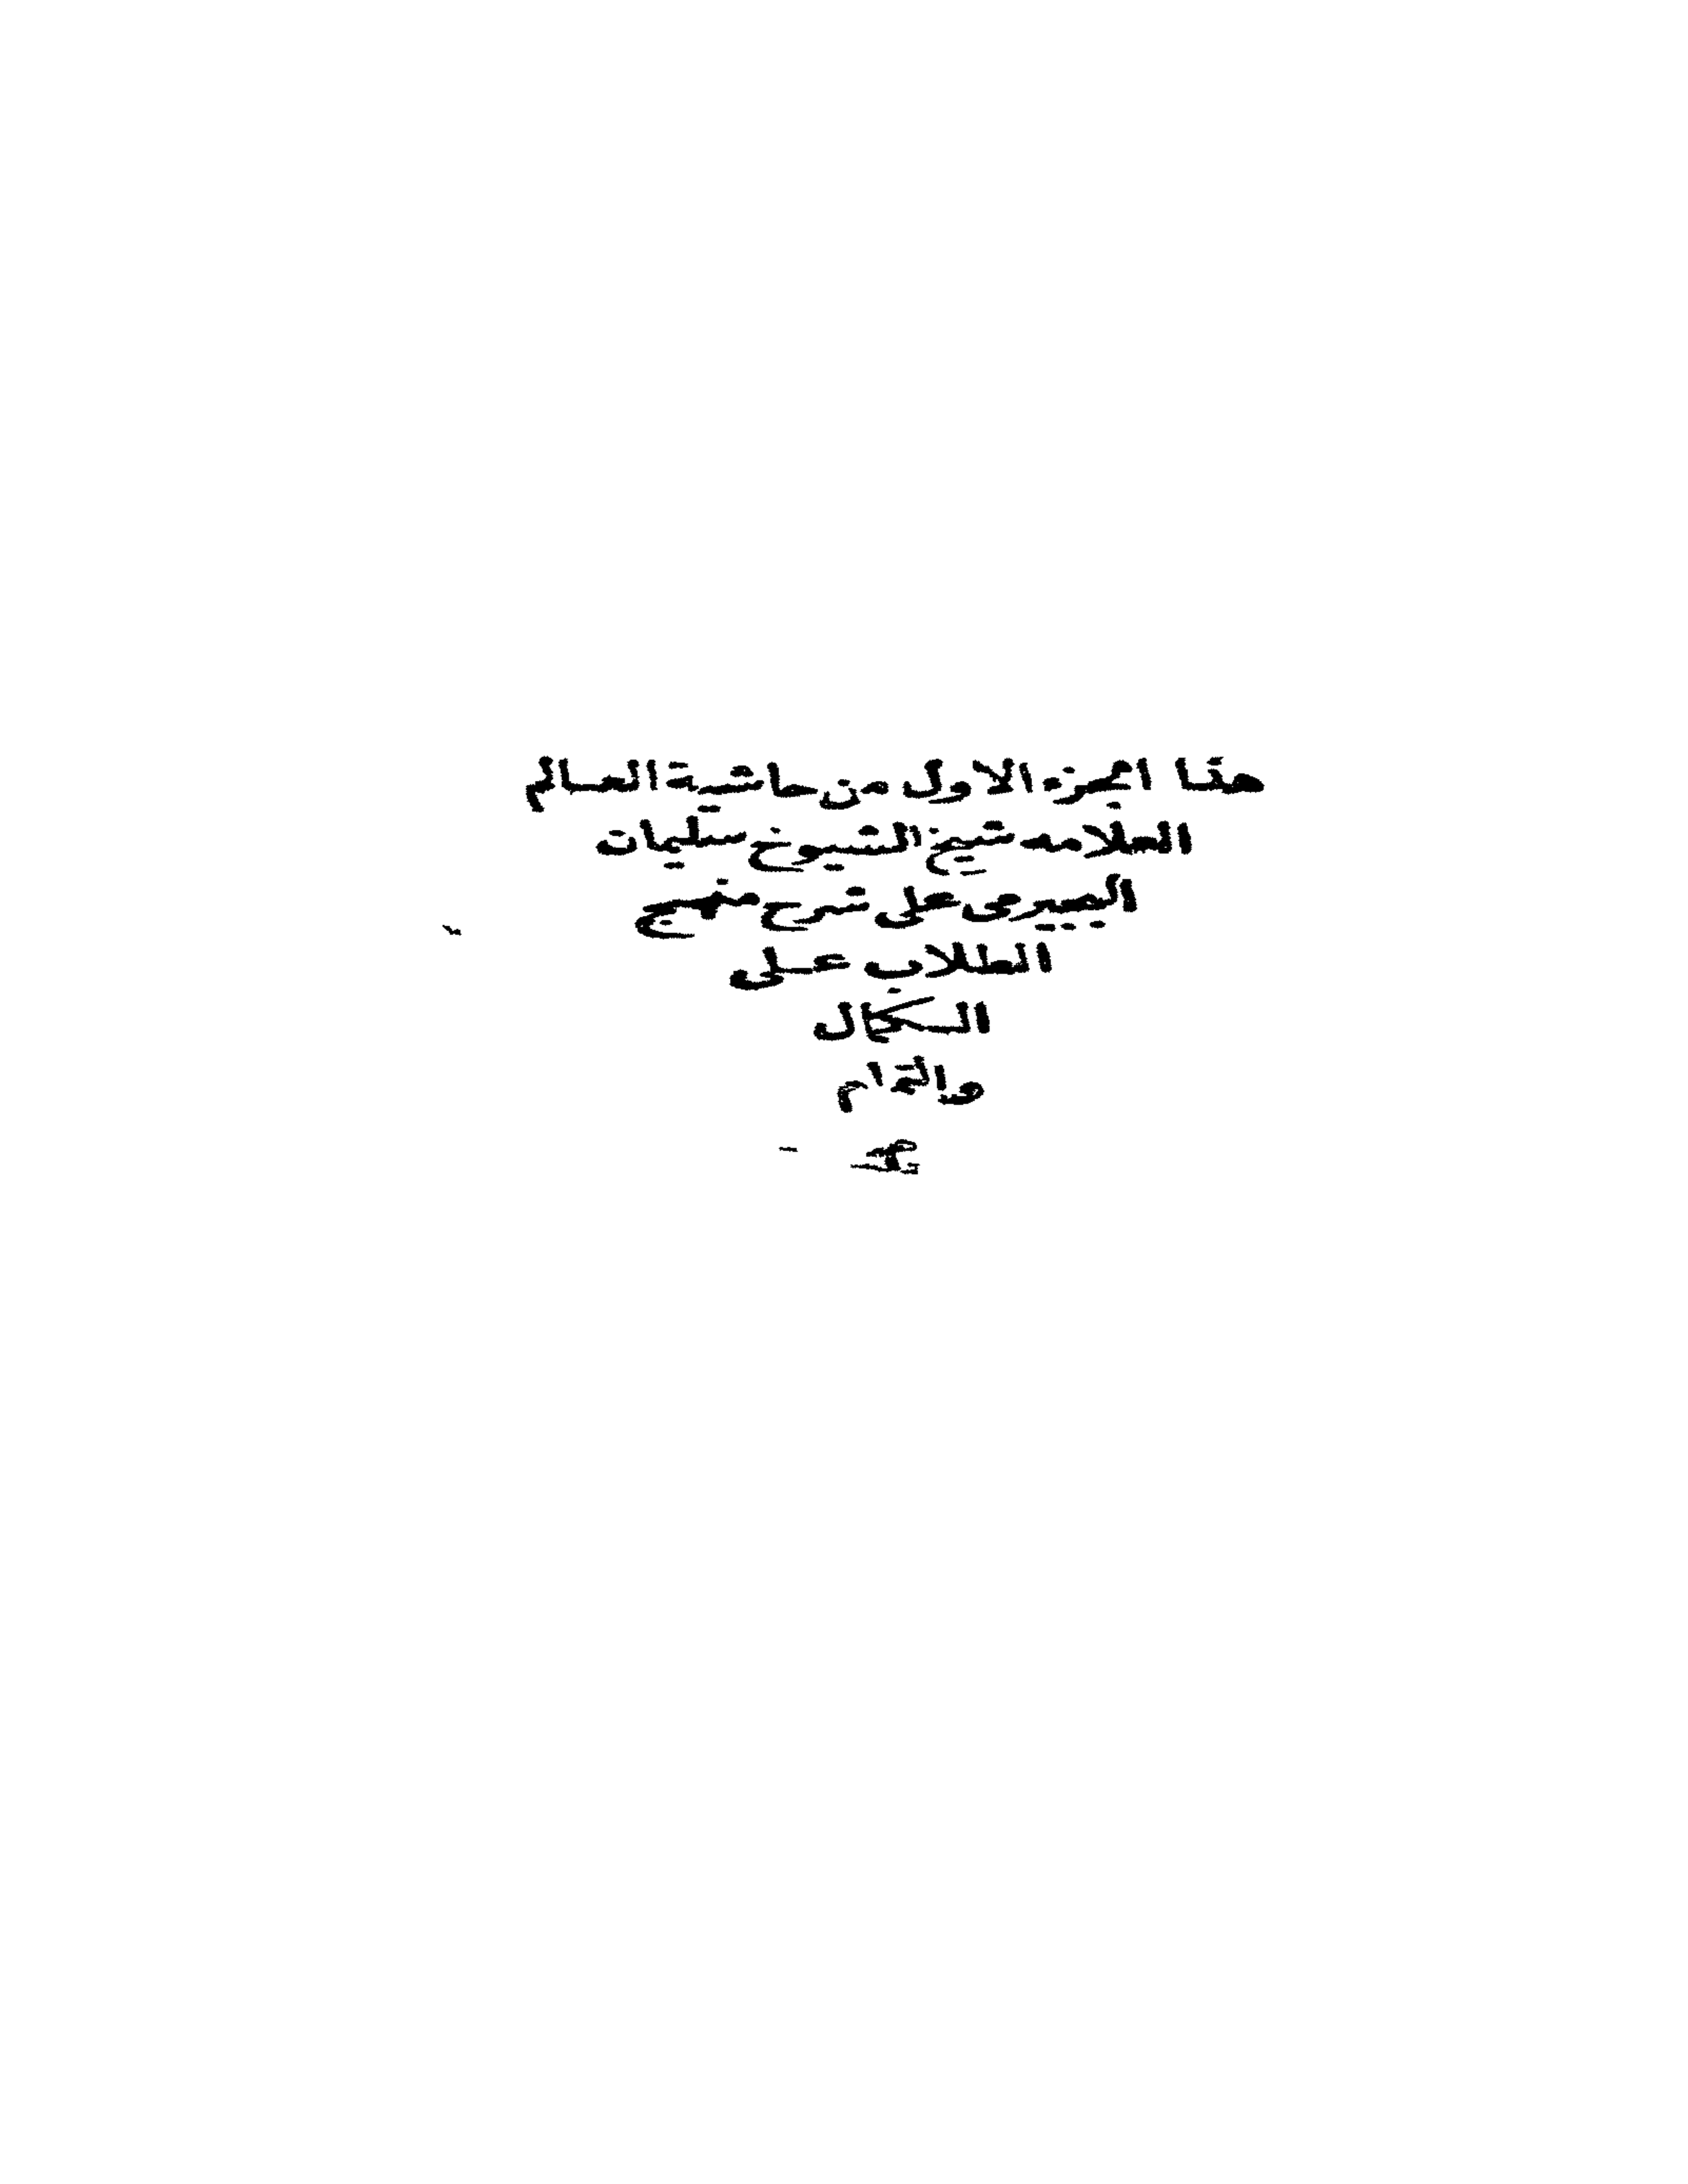 هذا الجزء الاول من حاشية العالم
العلامه شيخ الشيوخ سليمان
البجيرمى على شرح منهج
الطلاب على
الكمال
والتمام